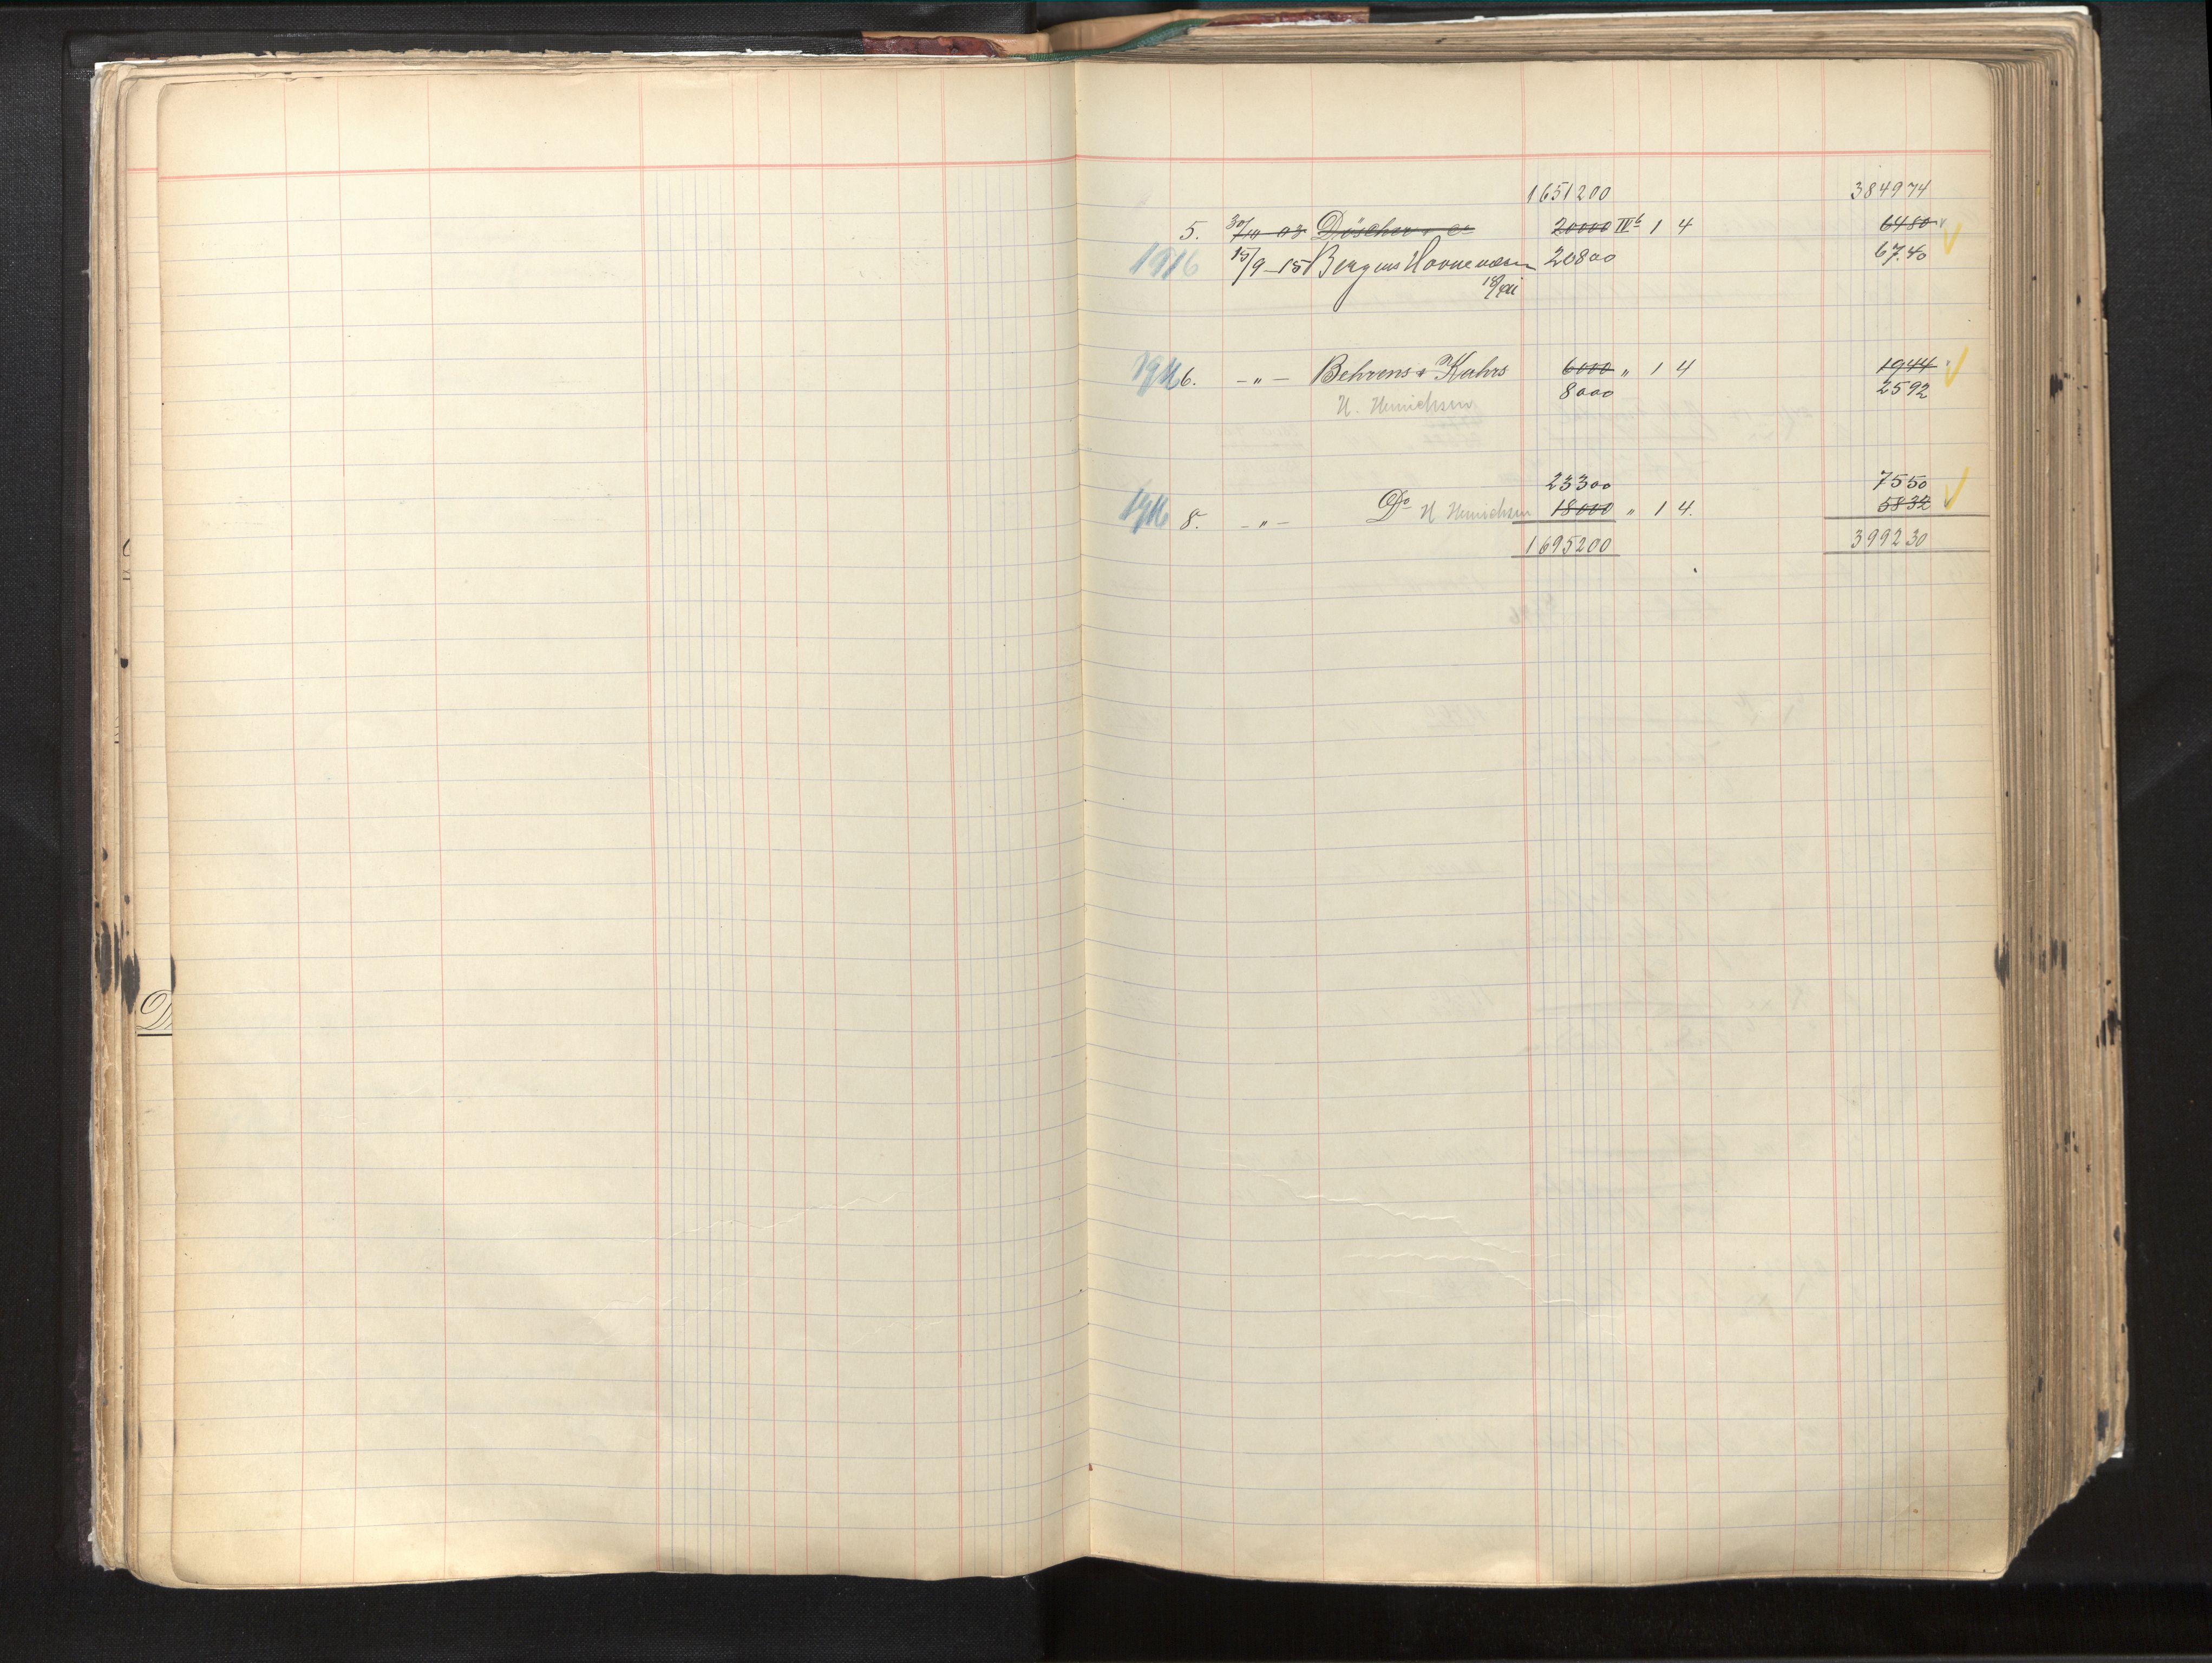 1651200 384974
5. 30/10 03 Düscher & Co 20000 IVb 1 4 6480
1916 15/9-15 Bergens Havnevæsen 20800 67.40
1916 6. -"- Behrens & Kuhrs 6000 " 1 4 1944
H. Henrichsen 8000 2592
23300 7550
1916 8. -"- Do H Henrichsen 18000 " 1 4. 5832
1695200 399230